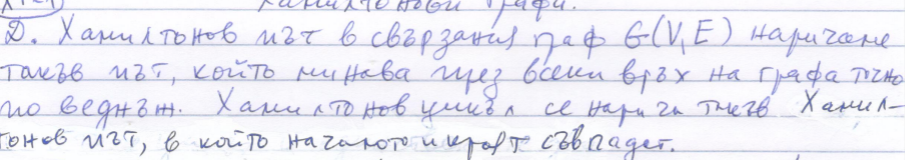 Хамилтонови графи.
Д. Хамилтонов път в свързания граф G(V,E) наричаме
такъв път, който минава през всеки връх на графа точно
по веднъж. Хамилтонов цикъл се нарича такъв Хамил-
тонов път, в който началото и краят съвпадат.